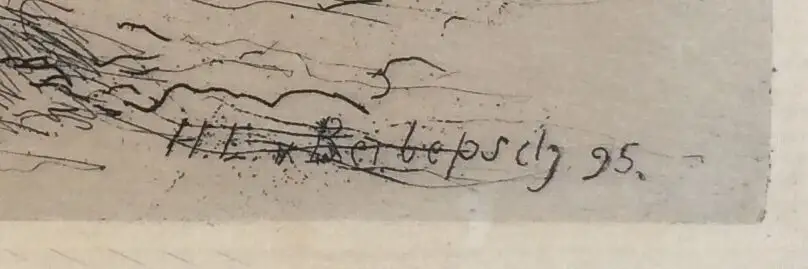 H.E. v Berlepsch 95.